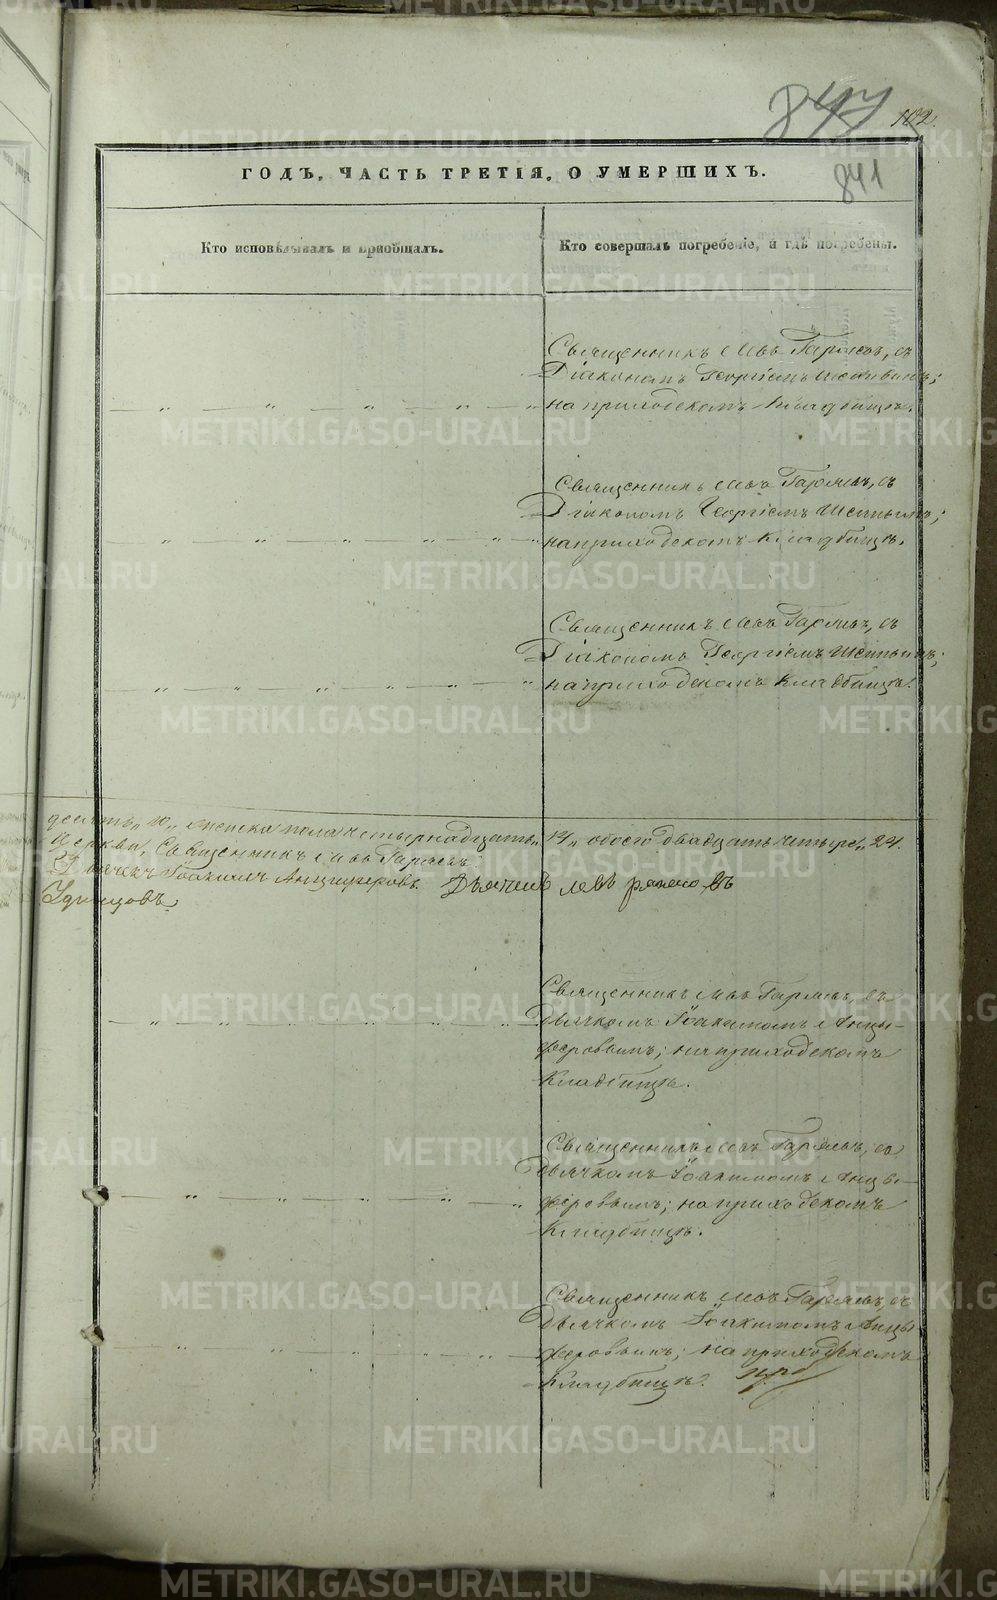 847
102.
841
ГОДЪ. ЧАСТЬ ТРЕТІЯ, О УМЕРШИХЪ.
Кто исповѣдывалъ и пріобщалъ.
Кто совершалъ погребеніе, и гдѣ погребены.
Священникъ Левъ Гаряевъ, съ
Діакономъ Георгіемъ
на приходскомъ кладбищѣ.
Священникъ Левъ Гаряевъ, съ
Діакономъ Георгіемъ
на приходскомъ кладбищѣ.
Священникъ Левъ Гаряевъ, съ
Діакономъ Георгіемъ
на приходскомъ кладбищѣ.
десять„ 10„ женска пола четырнадцать„ 14„ обоего двадцать четыре„ 24.
Церкви, Священникъ Левъ Гаряевъ
Дьячекъ Іоакимъ Анцыферовъ Дьячекъ Левъ
Удинцовъ
Священникъ Левъ Гаряевъ, съ
Дьячкомъ Іоакимомъ Анцы-
феровымъ; на приходскомъ
Кладбищѣ.
Священникъ Левъ Гаряевъ, съ
Дьячкомъ Іоакимомъ Анцы-
феровымъ; на приходскомъ
Кладбищѣ.
Священникъ Левъ Гаряевъ, съ
Дьячкомъ Іоакимомъ Анцы
феровымъ; на приходскомъ
Кладбищѣ.
METRIKI.GASO-URAL.RU